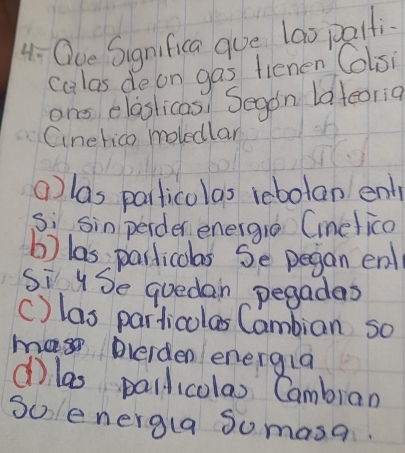 4- Que Significa que las parti-
culas de un gas tienen Colisi
ons elásticas, Segun la teoria
Cinetica moledlar
a) las particulas rebotan entr
si sin perder energia Cinetico
b) las particulas Se pegan entr
si y Se quedan pegadas
c) las particulas Cambian so
masa pierden energia
d) las particulas Cambian
So energia su masa.